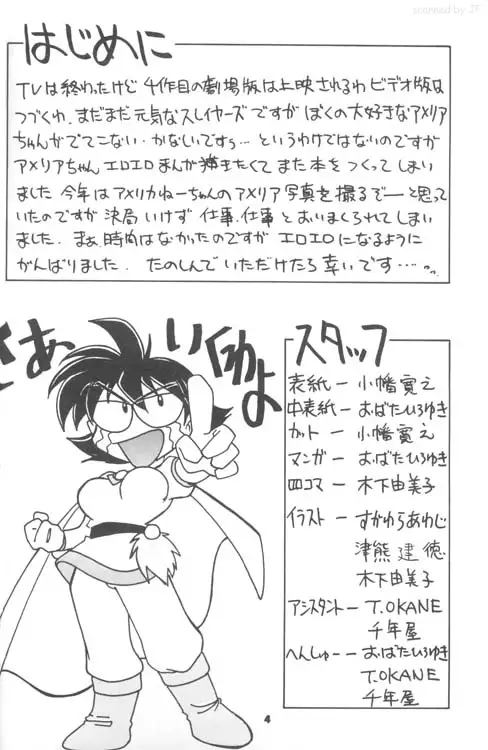 scanned by JF
はじめに
TVは終わったけど 4作目の劇場版は上映されるわ ビデオ版は
つづくわ、まだまだ元気なスレイヤーズですが ぼくの大好きなアメリア
ちゃんがでてこない・かなしいですぅ…というわけではないのですが
アメリアちゃんエロエロまんが描きたくて また本をつくってしまい
ました 今年はアメリカねーちゃんのアメリア写真を撮るぞーと思って
いたのですが 決局いけず 仕事、仕事とおいまくられてしまい
ました. まぁ、時間はなかったのですが エロエロになるように
がんばりました. たのしんでいただけたら幸いです…
さあ いくわよ
スタッフ
表紙ー 小幡寛之
中表紙ー おばたひろゆき
カットー 小幡寛之
マンガー おばたひろゆき
四コマー 木下由美子
イラストー すがわらあわじ
津熊建徳
木下由美子
アシスタントー T.OKANE
千年屋
へんしゅーー おばたひろゆき
T.OKANE
千年屋
4